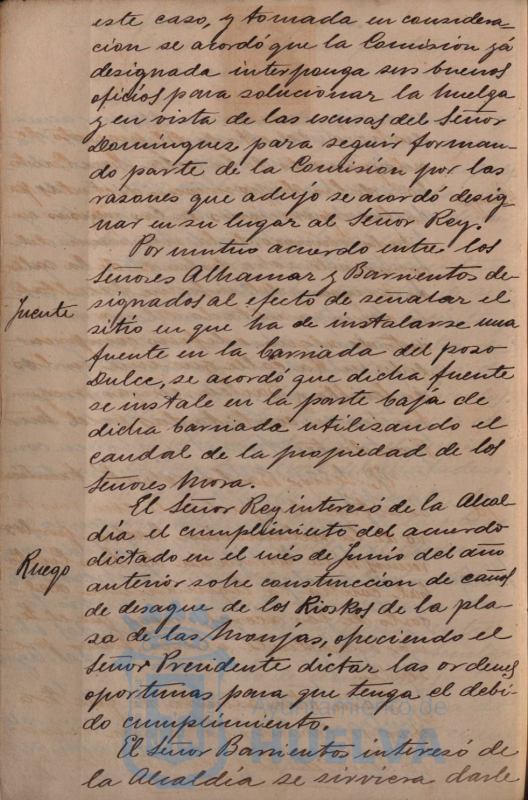 este caso, y tomada en considera-
cion se acordó que la Comisión yá
designada interponga sus buenos
oficios para solucionar la huelga
y en vista de las escusas del Señor
Dominguez para seguir forman-
do parte de la Comisión por las
razones que adujo se acordó desig-
nar en su lugar al Señor Rey.
Por mutuo acuerdo entre los
Señores Alhamar y Barrientos de-
signados al efecto de señalar el
Fuente
sitio en que ha de instalarse una
fuente en la barriada del poso
Dulce, se acordó que dicha fuente
se instale en la parte baja de
dicha barriada utilizando el
caudal de la propiedad de los
Señores Mora.
El Señor Rey interesó de la Alcal-
día el cumplimiento del acuerdo
dictado en el mes de Junio del año
Ruego
anterior sobre construccion de caños
de desague de los Kioskos de la pla-
za de las Monjas, ofreciendo el
Señor Presidente dictar las ordenes
oportunas para que tenga el debi-
do cumplimiento.
El Señor Barrientos interesó de
la Alcaldía se sirviera darle
Ayuntamiento de
HUELVA